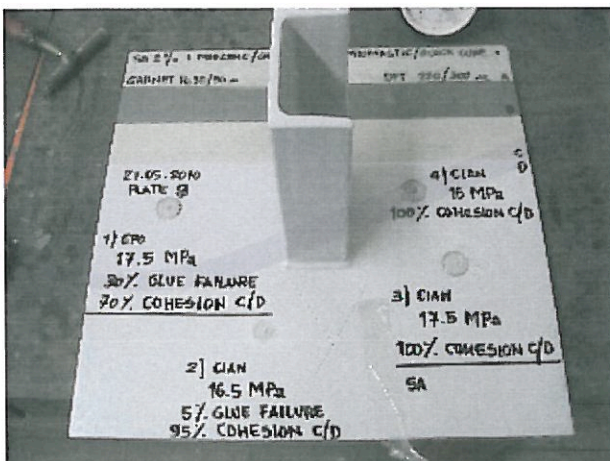 SA 2½
GARNET
DFT
A
B
C
D
27.05.2010
PLATE
1) EPO
17.5 MPa
30% GLUE FAILURE
70% COHESION C/D
2] CIAN
16.5 MPa
5% GLUE FAILURE
95% COHESION C/D
4) CIAN
15 MPa
100% COHESION C/D
3) CIAN
17.5 MPa
100% COHESION C/D
SA